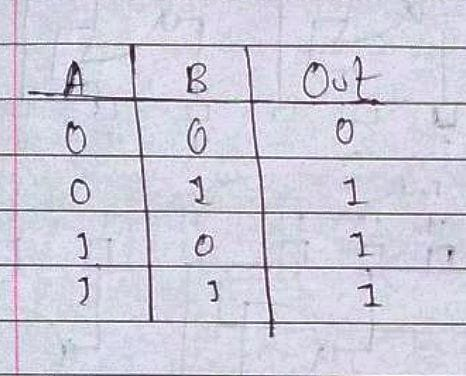 A B Out
0 0 0
0 1 1
1 0 1
1 1 1